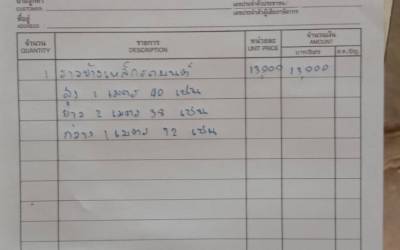 นามลูกค้า
CUSTOMER
ที่อยู่
ADDRESS
เลขประจำตัวประชาชน /
เลขประจำตัวผู้เสียภาษีอากร
จำนวน รายการ หน่วยละ จำนวนเงิน
QUANTITY DESCRIPTION UNIT PRICE AMOUNT
1 13,000 13,000
สูง 1 เมตร 40 เซน
ยาว 2 เมตร 38 เซน
กว้าง 1 เมตร 72 เซน